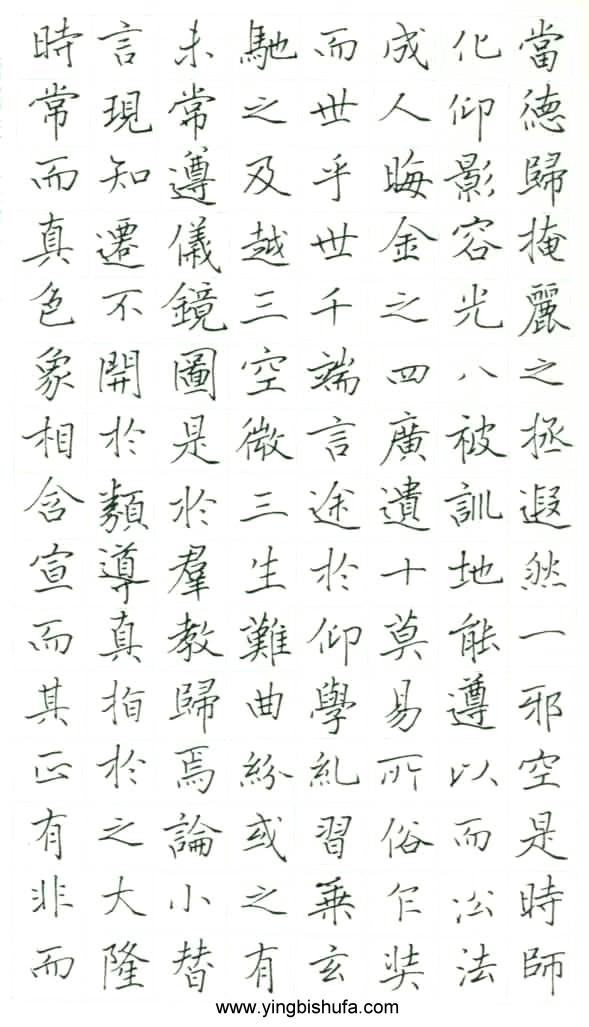 時言未馳而成化當
常現常之世人仰德
而知遵及乎晦影歸
真遷儀越世金容掩
色不鏡三千之光麗
象開圖空端四八之
相於是微言廣被拯
含類於三途遺訓遐
宣導羣生於十地然
而真教難仰莫能一
其指歸曲學易遵邪
正於焉紛糺所以空
有之論或習俗而是
非大小之乗乍沿時
而隆替有玄奘法師
www.yingbishufa.com